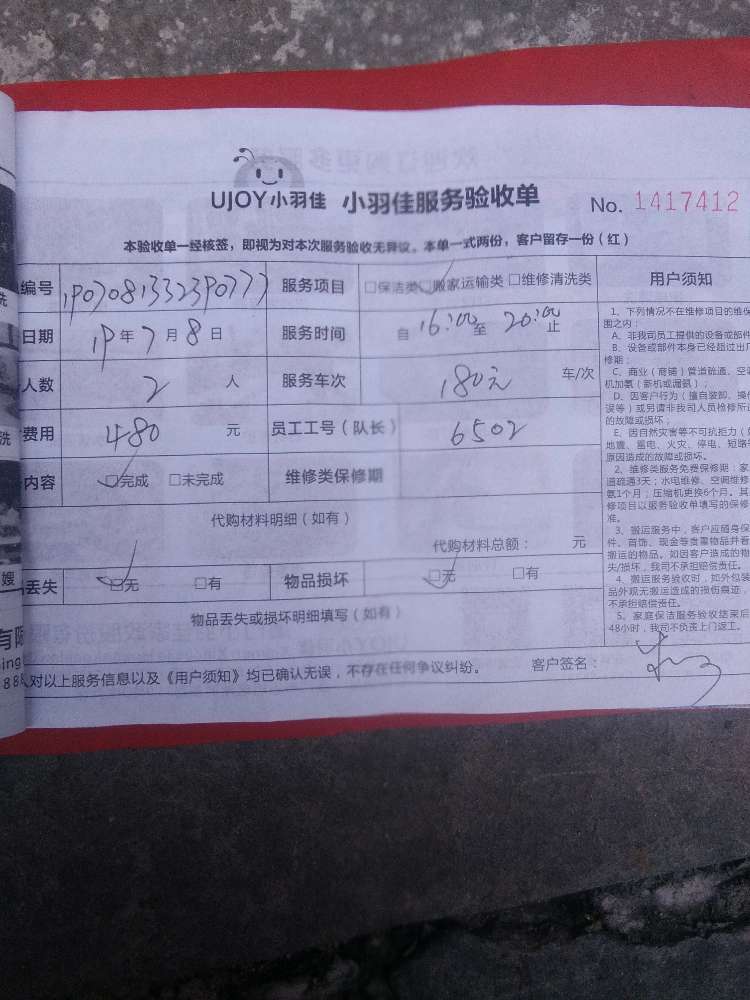 UJOY小羽佳 小羽佳服务验收单 No. 1417412
本验收单一经核签，即视为对本次服务验收无异议。本单一式两份，客户留存一份（红）
编号 1907081332390777 服务项目 □保洁类 □搬家运输类 □维修清洗类 用户须知
日期 19年7月8日 服务时间 自16:00至20:00止
人数 2 人 服务车次 180元 车/次
费用 480 元 员工工号（队长） 6502
内容 □完成 □未完成 维修类保修期
代购材料明细（如有）
代购材料总额： 元
丢失 □无 □有 物品损坏 □无 □有
物品丢失或损坏明细填写（如有）
对以上服务信息以及《用户须知》均已确认无误，不存在任何争议纠纷。 客户签名：
1、下列情况不在维修项目的维保
围之内：
A、非我司员工提供的设备或部件
B、设备或部件本身已经超过出厂
修期；
C、商业（商铺）管道疏通、空
机加氨（新机或漏氨）；
D、因客户行为（擅自装卸、操
误等）或另请非我司人员检修所
的故障或损坏；
E、因自然灾害等不可抗拒力（
地震、雷电、火灾、停电、短路
原因造成的故障或损坏。
2、维修类服务免费保修期：家
道疏通3天；水电维修、空调维修
氨1个月；压缩机更换6个月。其
修项目以服务验收单填写的保修
准。
3、搬运服务中，客户应随身保
件、首饰、现金等贵重物品并看
搬运的物品。如因客户造成的物
失/损坏，我司不承担赔偿责任。
4、搬运服务验收时，如外包装
品外观无搬运造成的损伤痕迹，
不承担赔偿责任。
5、家庭保洁服务验收结束后
48小时，我司不负责上门返工。
洗
洗
嫂
有限
ing